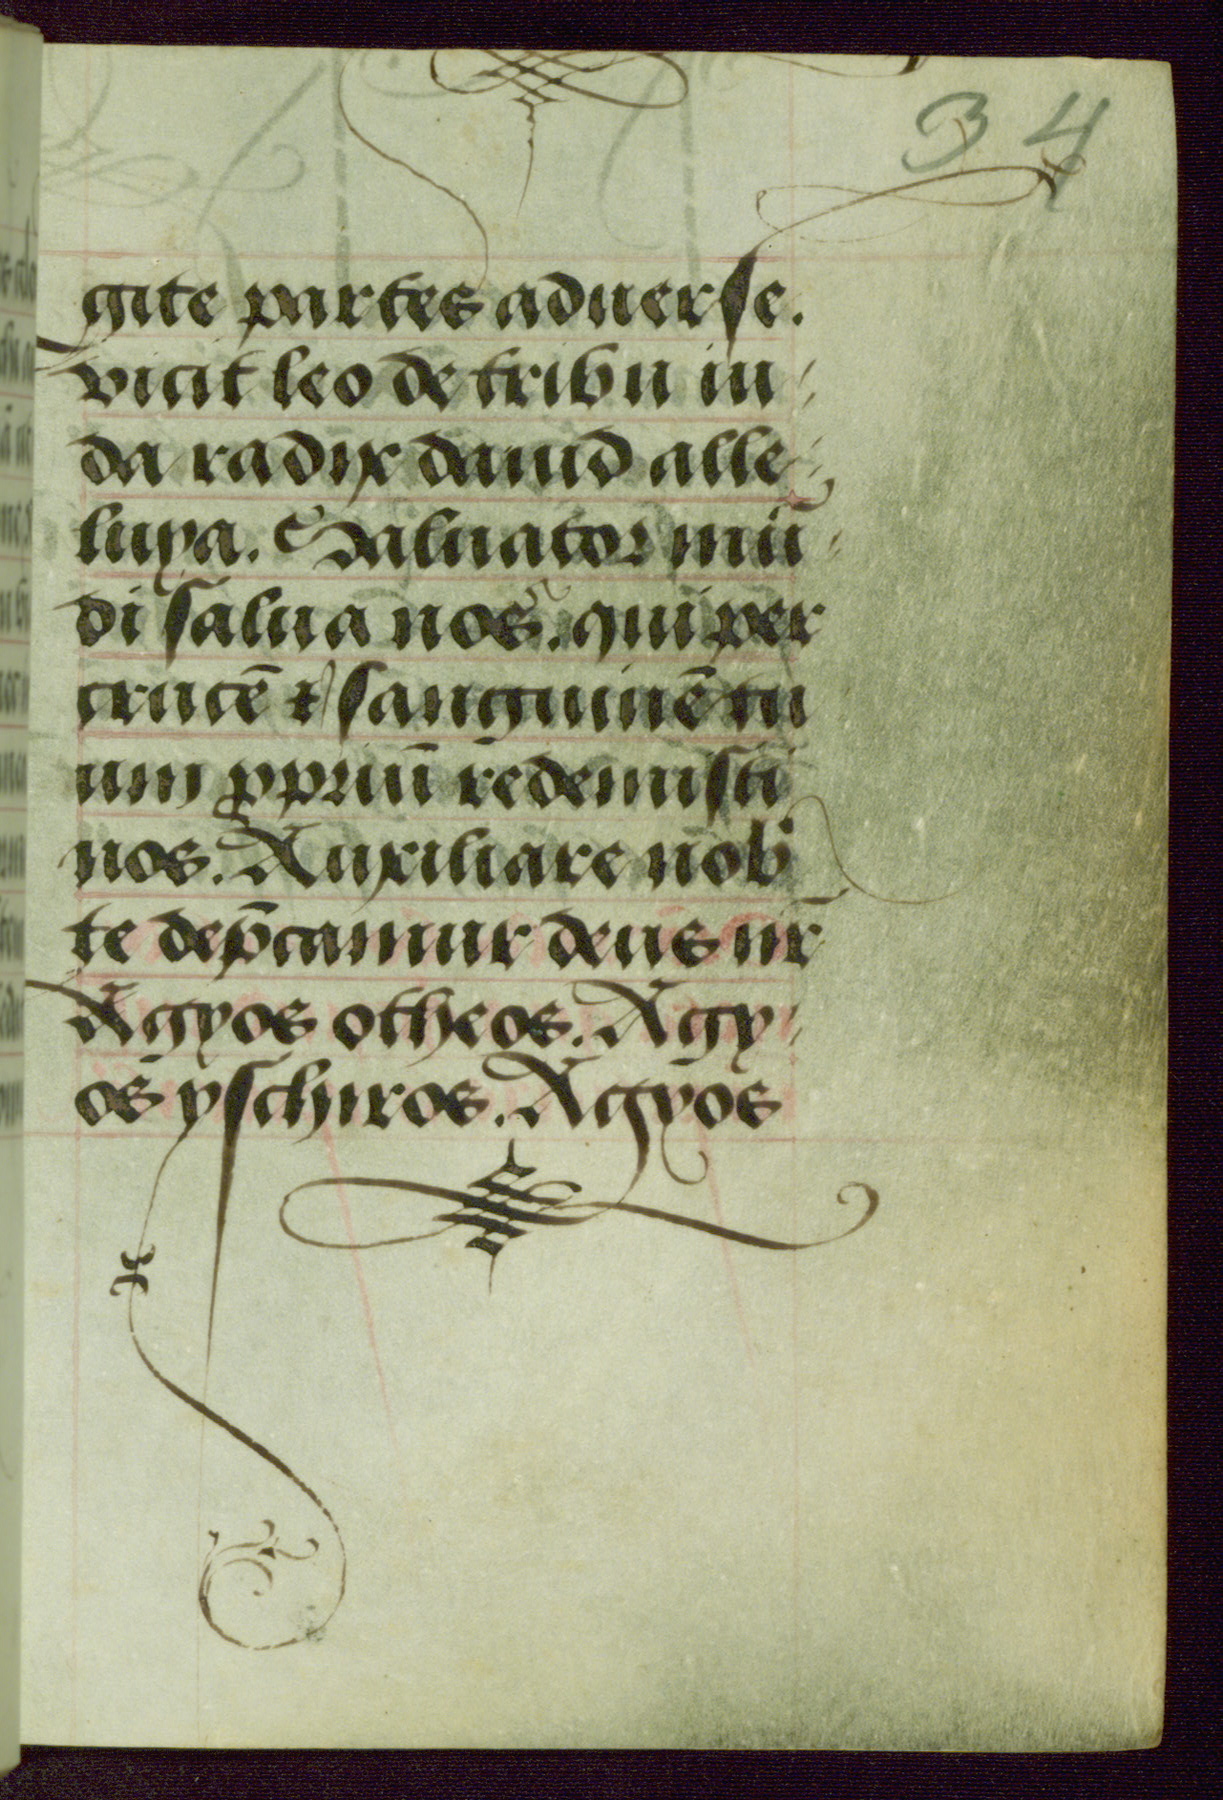 34
gite partes aduerse.
vicit leo de tribu iu
da radix dauid alle
luya. Saluator mū
di salua nos. qui per
crucē et sanguinē tu
um ꝓpriū redemisti
nos. Auxiliare nob̛
te dep̄camur deus nr̄
Agyos otheos. Agy
os yschiros. Agyos